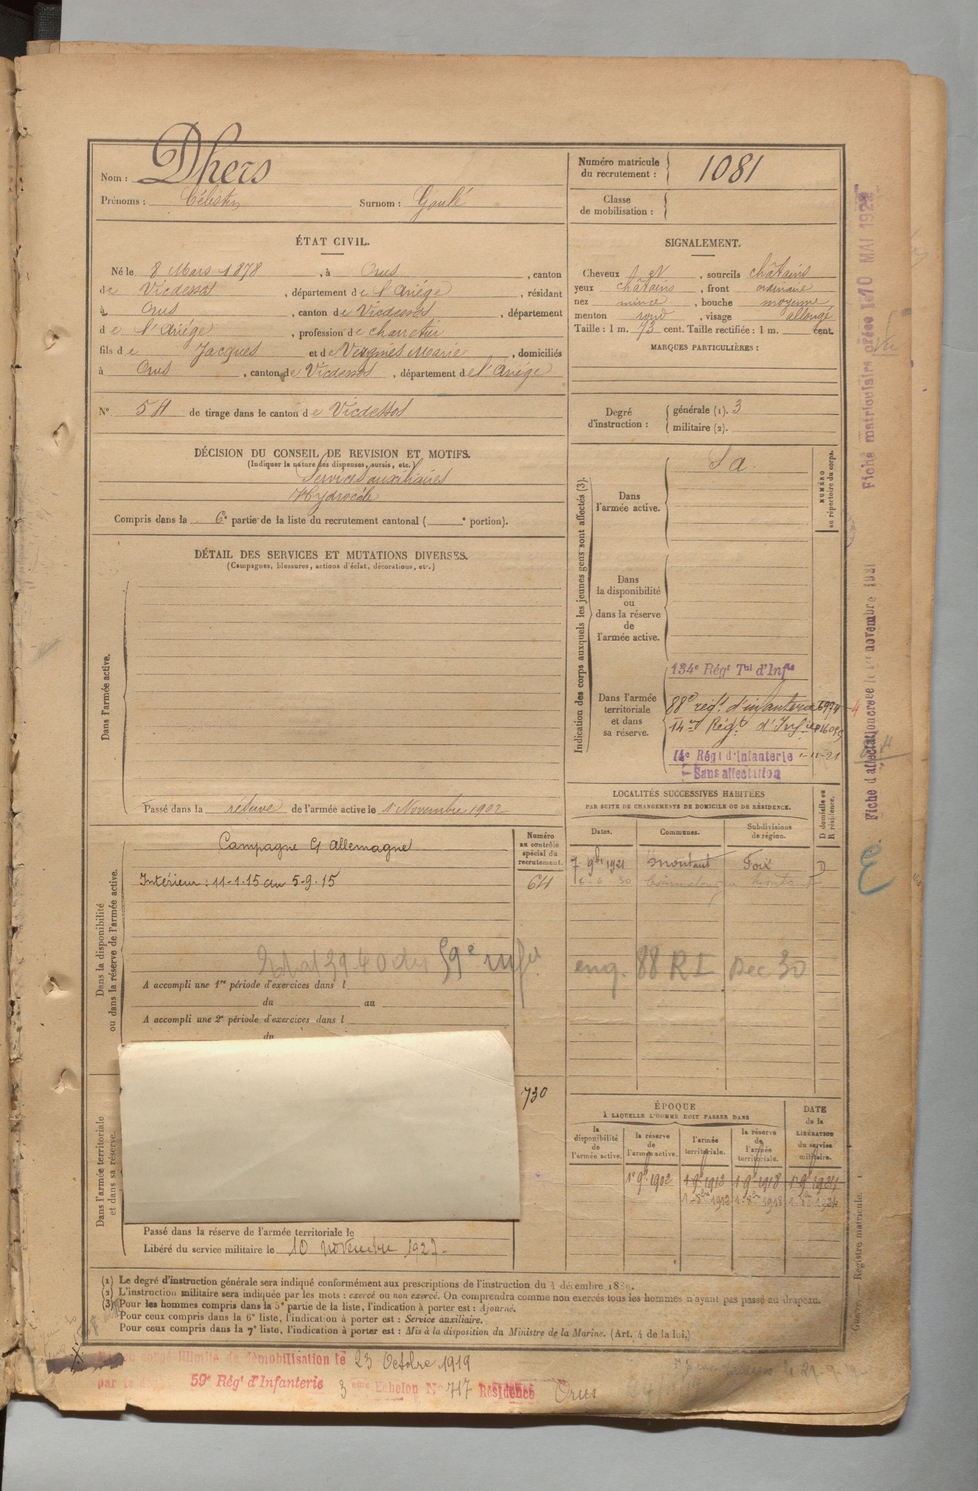 Nom : Dhers
Prénoms : Célestin Surnom : Goulé
Numéro matricule du recrutement : 1081
Classe de mobilisation :
ÉTAT CIVIL.
Né le 8 Mars 1878, à Orus, canton
de Vicdessos, département de l'Ariége, résidant
à Orus, canton de Vicdessos, département
de l'Ariége, profession de charretier
fils de Jacques et de Vergnies Marie, domiciliés
à Orus, canton de Vicdessos, département de l'Ariége
N° 51 de tirage dans le canton de Vicdessos
SIGNALEMENT.
Cheveux, sourcils châtains
yeux châtains, front ordinaire
nez mince, bouche moyenne
menton rond, visage allongé
Taille : 1 m. 73 cent. Taille rectifiée : 1 m. cent.
MARQUES PARTICULIÈRES :
Degré d'instruction : générale (1). 3
militaire (2).
DÉCISION DU CONSEIL DE REVISION ET MOTIFS.
(Indiquer la nature des dispenses, sursis, etc.)
Services auxiliaires
Hydrocèle
Compris dans la 6e partie de la liste du recrutement cantonal ( e portion).
DÉTAIL DES SERVICES ET MUTATIONS DIVERSES.
(Campagnes, blessures, actions d'éclat, décorations, etc.)
Dans l'armée active.
Passé dans la réserve de l'armée active le 1 Novembre 1902
Indication des corps auxquels les jeunes gens sont affectés (3).
NUMÉRO au répertoire du corps.
Dans l'armée active.
S a
Dans la disponibilité ou dans la réserve de l'armée active.
Dans l'armée territoriale et dans sa réserve.
134e Régt Tal d'Infie
88e régt. d'infanterie
14e Régt d'Infie
14e Régt d'Infanterie
Sans affectation
LOCALITÉS SUCCESSIVES HABITÉES
PAR SUITE DE CHANGEMENTS DE DOMICILE OU DE RÉSIDENCE.
D domicile ou R résidence.
Dates. Communes. Subdivisions de région.
7 9bre 1921 Montaut Foix D
Dans la disponibilité ou dans la réserve de l'armée active.
Numéro au contrôle spécial du recrutement.
Campagne Ct Allemagne
Intérieur : 11-1-15 au 5-9-15
59e inf
eng. 88 RI Dec 30
A accompli une 1re période d'exercices dans l
du au
A accompli une 2e période d'exercices dans l
du
730
Dans l'armée territoriale et dans sa réserve.
Passé dans la réserve de l'armée territoriale le
Libéré du service militaire le 10 novembre 1927.
ÉPOQUE
À LAQUELLE L'HOMME DOIT PASSER DANS
DATE de la LIBÉRATION du service militaire.
la disponibilité de l'armée active. la réserve de l'armée active. l'armée territoriale. la réserve de l'armée territoriale.
1er 9bre 1902
(1) Le degré d'instruction générale sera indiqué conformément aux prescriptions de l'instruction du 4 décembre 1889.
(2) L'instruction militaire sera indiquée par les mots : exercé ou non exercé. On comprendra comme non exercés tous les hommes n'ayant pas passé au drapeau.
(3) Pour les hommes compris dans la 5e partie de la liste, l'indication à porter est : Ajourné.
Pour ceux compris dans la 6e liste, l'indication à porter est : Service auxiliaire.
Pour ceux compris dans la 7e liste, l'indication à porter est : Mis à la disposition du Ministre de la Marine. (Art. 4 de la loi.)
illimité de démobilisation le 23 Octobre 1919
59e Régt d'Infanterie 3 ème Echelon N° 717 Résidence Orus
Fiche matriculaire créée le 10 MAI 1922
Registre matricule.